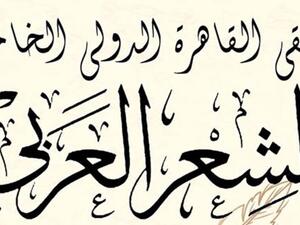 القاهرة الدولى
الشعر العربى